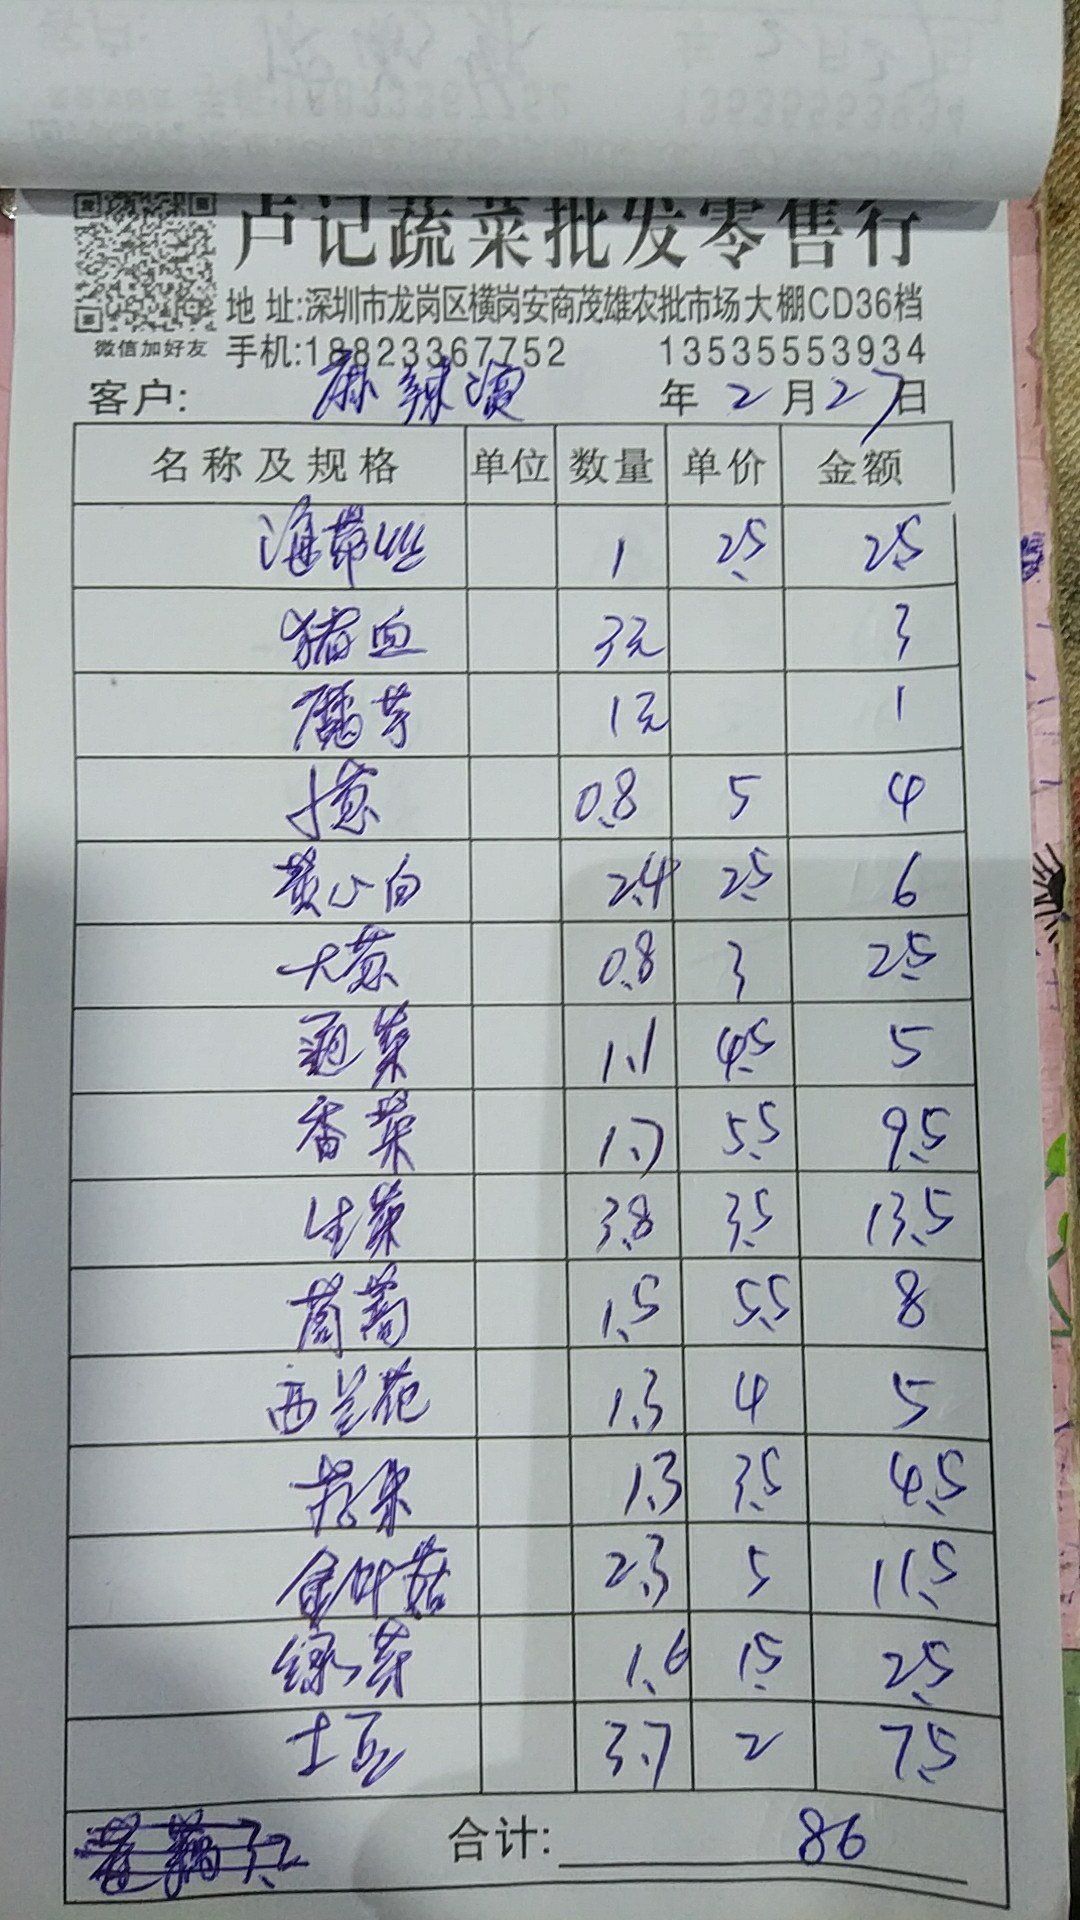 卢记蔬菜批发零售行
地 址:深圳市龙岗区横岗安商茂雄农批市场大棚CD36档
微信加好友 手机:18823367752 13535553934
客户: 麻辣烫 年 2 月 27 日
名称及规格 单位 数量 单价 金额
海带丝 1 2.5 2.5
猪血 3元 3
魔芋 1元 1
小葱 0.8 5 4
黄心白 2.4 2.5 6
大葱 0.8 3 2.5
菜 1.1 4.5 5
香菜 1.7 5.5 9.5
生菜 3.8 3.5 13.5
茼蒿 1.5 5.5 8
西兰花 1.3 4 5
1.3 3.5 4.5
金针菇 2.3 5 11.5
绿芽 1.6 1.5 2.5
土豆 3.7 2 7.5
合计: 86